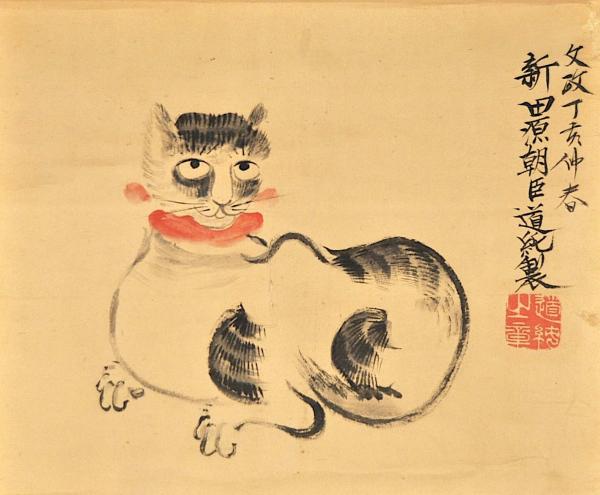 文政丁亥仲春
新田源朝臣道純製
道純
之章